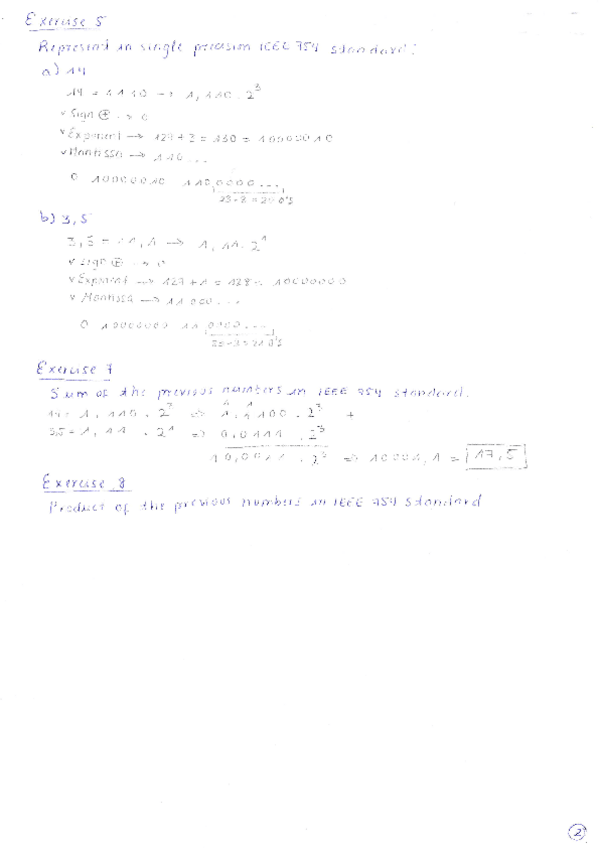 Exercise 5
Represent in single precision IEEE 754 standard:
a) 14
14 = 1110 → 1,110 · 2^3
v Sign ⊕ → 0
v Exponent → 127 + 3 = 130 = 10000010
v Mantissa → 110...
0 10000010 1100000...
0's
b) 3,5
3,5 = 11,1 → 1,11 · 2^1
v Sign ⊕ → 0
v Exponent → 127 + 1 = 128 = 10000000
v Mantissa → 11000...
0 10000000 11
0's
Exercise 7
Sum of the previous numbers in IEEE 754 standard.
14 = 1,110 · 2^3 ⇒ 1,1100 · 2^3 +
3,5 = 1,11 · 2^1 ⇒ 0,0111 · 2^3
⇒ 10001,1 = 17,5
Exercise 8
Product of the previous numbers in IEEE 754 standard
2